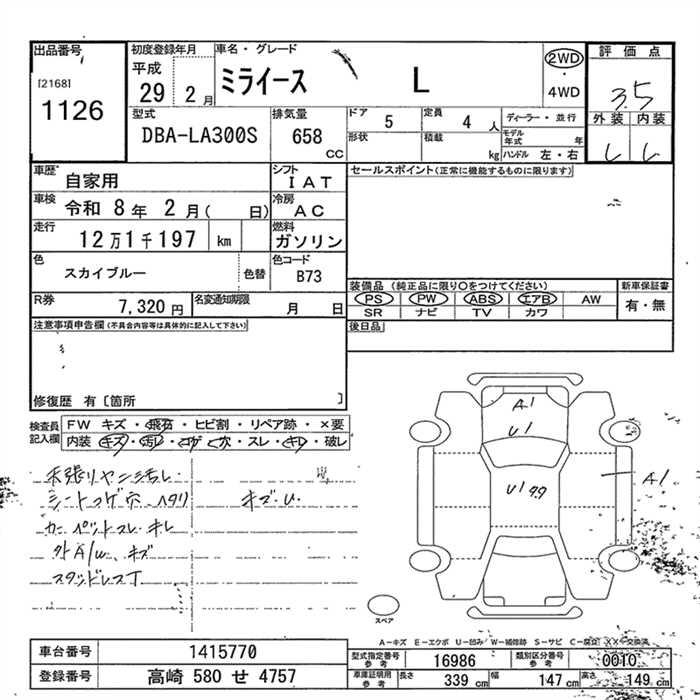 出品番号
[2168]
1126
初度登録年月
平成
29 2月
車名・グレード
ミライース L
2WD
・
4WD
評価点
3.5
外装 内装
型式
DBA-LA300S
排気量
658
CC
ドア 5
定員 4 人
形状
積載 kg
ディーラー・並行
モデル年式 年
ハンドル 左・右
車歴 自家用
シフト IAT
車検 令和 8年 2月( 日)
冷房 AC
走行 12万1千197 km
燃料 ガソリン
色 スカイブルー 色替
色コード B73
R券 7,320円
名変通知期限 月 日
セールスポイント(正常に機能するものに限ります)
装備品 (純正品に限り○をつけてください)
PS PW ABS エアB AW
SR ナビ TV カワ
新車保証書
有・無
後日品
注意事項申告欄(不具合内容等は具体的に記入して下さい)
修復歴 有[箇所 ]
検査員記入欄
FW キズ・飛石・ヒビ割・リペア跡・×要
内装 キズ・汚レ・コゲ・穴・スレ・キレ・破レ
シートコゲ穴 ヘタリ
キズ・U
外A/W キズ
スタッドレスT
A1
U1
U1 99
A1
スペア
A-キズ E-エクボ U-凹み W-補修跡 S-サビ C-腐食 XX-交換済
車台番号 1415770
登録番号 高崎 580 せ 4757
型式指定番号 参考 16986
類別区分番号 参考 0010
車庫証明用 参考 長さ 339 cm 幅 147 cm 高さ 149 cm